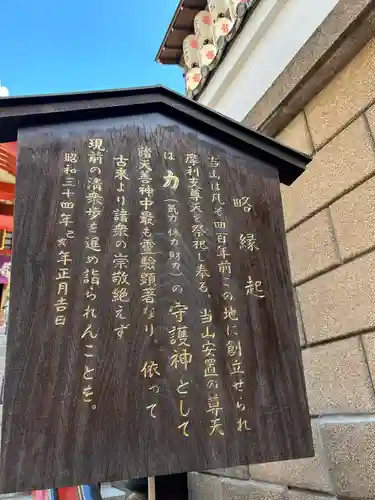 略縁起
当山は凡そ四百年前この地に創立せられ
摩利支尊天を祭祀し奉る。当山安置の尊天
は力（気力 体力 財力）の守護神として
諸天善神中最も霊験顕著なり。依って
古来より諸衆の崇敬絶えず
現前の清衆歩を進め詣られんことを。
昭和三十四年 亥年正月吉日